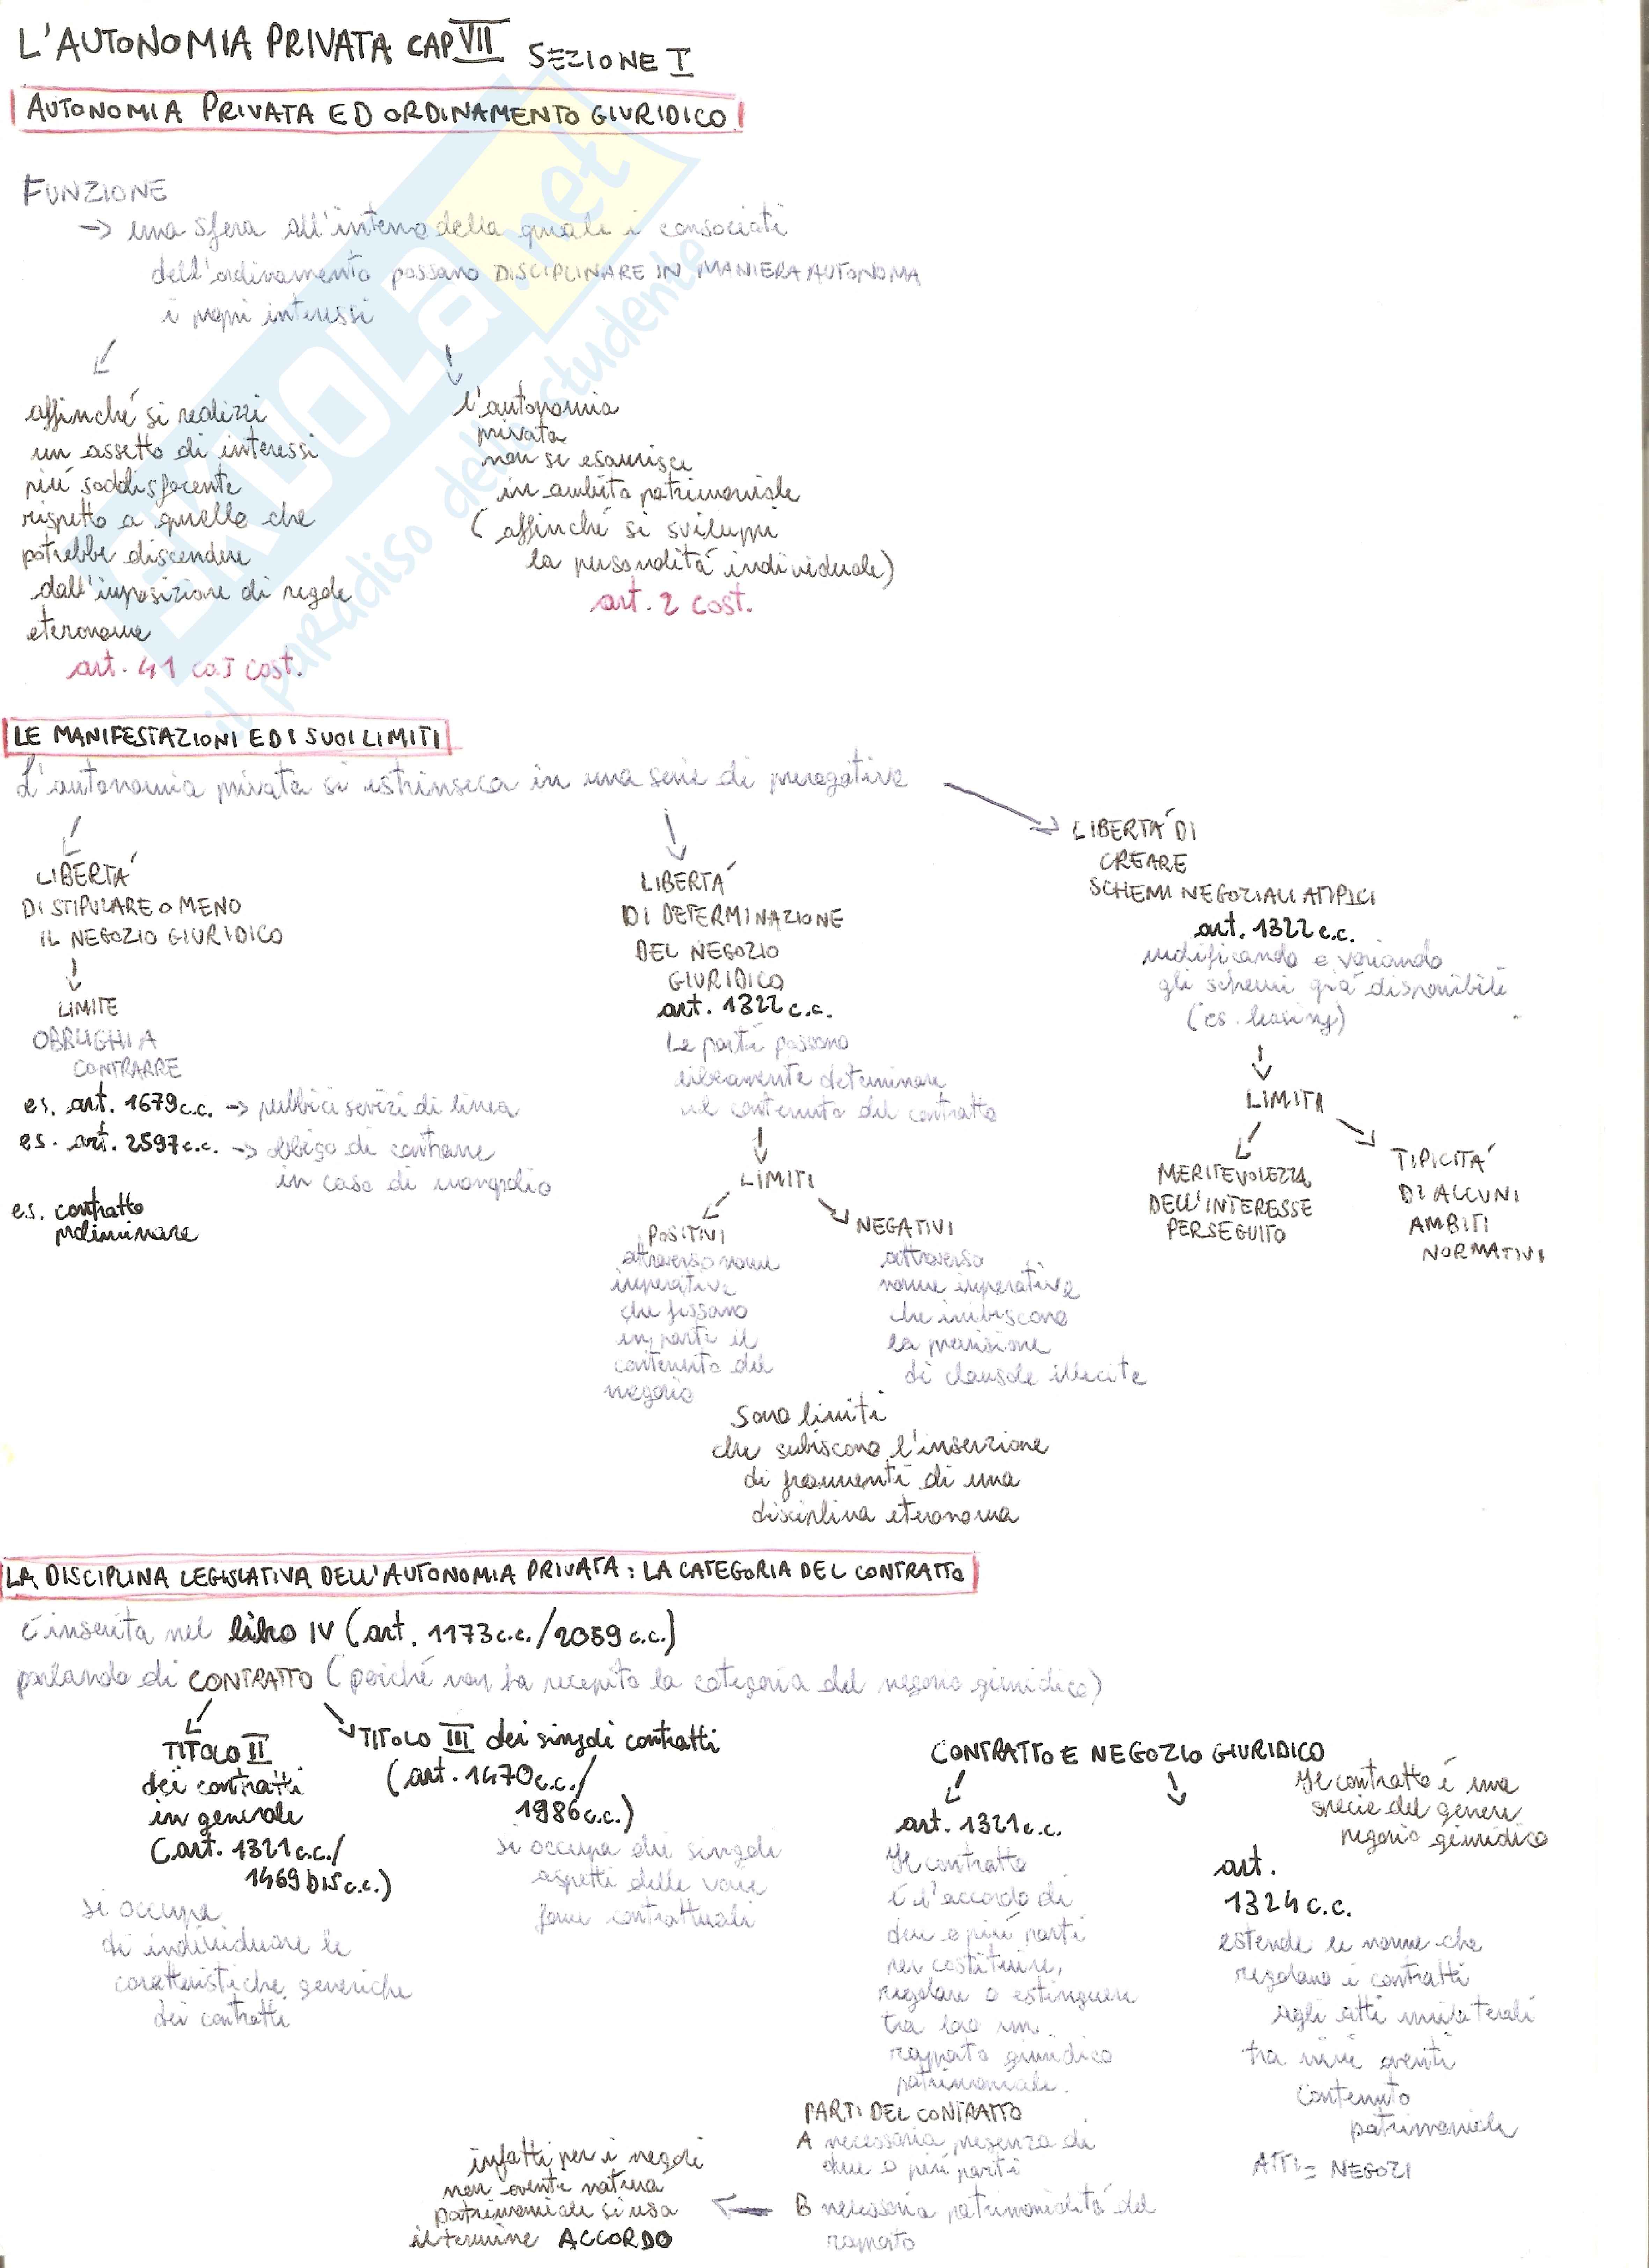 L'AUTONOMIA PRIVATA CAP VII SEZIONE I
AUTONOMIA PRIVATA ED ORDINAMENTO GIURIDICO
SKUOLa.net
il paradiso dello studente
FUNZIONE
→ una sfera all'interno della quale i consociati
dell'ordinamento possano DISCIPLINARE IN MANIERA AUTONOMA
i propri interessi
affinché si realizzi
un assetto di interessi
più soddisfacente
rispetto a quello che
potrebbe discendere
dall'imposizione di regole
eteronome
art. 41 co.I cost.
l'autonomia
privata
non si esaurisce
in ambito patrimoniale
(affinché si sviluppi
la personalità individuale)
art. 2 cost.
LE MANIFESTAZIONI ED I SUOI LIMITI
L'autonomia privata si estrinseca in una serie di prerogative
LIBERTÀ
DI STIPULARE O MENO
IL NEGOZIO GIURIDICO
LIMITE
OBBLIGHI A
CONTRARRE
es. art. 1679 c.c. → pubblici servizi di linea
es. art. 2597 c.c. → obbligo di contrarre
in caso di monopolio
es. contratto
preliminare
LIBERTÀ
DI DETERMINAZIONE
DEL NEGOZIO
GIURIDICO
art. 1322 c.c.
Le parti possono
liberamente determinare
il contenuto del contratto
LIMITI
POSITIVI
attraverso norme
imperative
che fissano
in parte il
contenuto del
negozio
NEGATIVI
attraverso
norme imperative
che inibiscono
la previsione
di clausole illecite
Sono limiti
che subiscono l'inserzione
di frammenti di una
disciplina eteronoma
LIBERTÀ DI
CREARE
SCHEMI NEGOZIALI ATIPICI
art. 1322 c.c.
modificando e variando
gli schemi già disponibili
(es. leasing)
LIMITI
MERITEVOLEZZA
DELL'INTERESSE
PERSEGUITO
TIPICITÀ
DI ALCUNI
AMBITI
NORMATIVI
LA DISCIPLINA LEGISLATIVA DELL'AUTONOMIA PRIVATA: LA CATEGORIA DEL CONTRATTO
È inserita nel libro IV (art. 1173 c.c./2059 c.c.)
parlando di CONTRATTO (poiché non ha recepito la categoria del negozio giuridico)
TITOLO II
dei contratti
in generale
(art. 1321 c.c./
1469 bis c.c.)
si occupa
di individuare le
caratteristiche generiche
dei contratti
TITOLO III dei singoli contratti
(art. 1470 c.c./
1986 c.c.)
si occupa dei singoli
aspetti delle varie
forme contrattuali
CONTRATTO E NEGOZIO GIURIDICO
art. 1321 c.c.
Il contratto
è l'accordo di
due o più parti
per costituire,
regolare o estinguere
tra loro un
rapporto giuridico
patrimoniale.
Il contratto è una
specie del genere
negozio giuridico
art.
1324 c.c.
estende le norme che
regolano i contratti
agli atti unilaterali
tra vivi aventi
contenuto
patrimoniale
ATTI = NEGOZI
PARTI DEL CONTRATTO
A necessaria presenza di
due o più parti
B necessaria patrimonialità del
rapporto
infatti per i negozi
non aventi natura
patrimoniale si usa
il termine ACCORDO